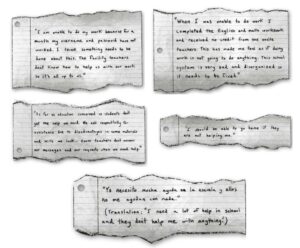 "I am unable to do my work because for a
months my username and password have not
worked. I tried, something needs to be
done about this. The facility teachers
dont know how to help us with our work
so it's all up to us."
"When I was unable to do work I
completed the English and math workbook
and received no credit from one whole
teachers. This has made me feel as if doing
work is not going to do anything. This school
system is very bad and disorganised so
it needs to be fixed."
"As far as education concerned us students dont
get the help we need. We ask respectfully for
assistance due to disadvantages in some materials
and work we lack. Some teachers dont answer
our messages and our requests when we need help"
I should be able to go home if they
are not helping me."
"Yo necesito mucha ayuda en la escuela y ellos
no me ayudan con nada."
(Translation: "I need a lot of help in school
and they don't help me with anything.")